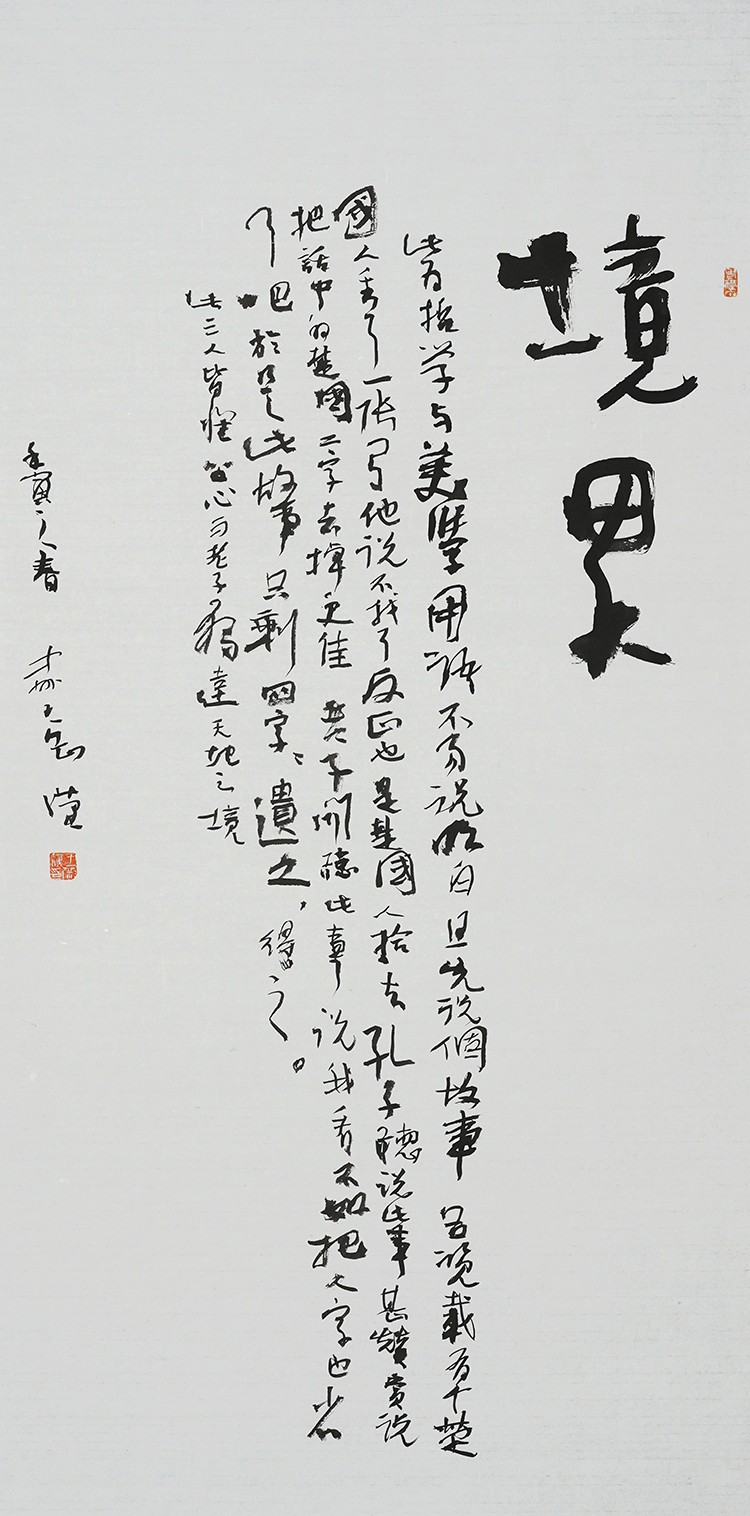 境界
此为哲学与美学用语不易说明白且先说個故事 吕览載有个楚
國人丢了一张弓他说不找了反正也是楚國人拾去孔子聽说此事甚赞賞说
把話中的楚國二字去掉更佳 老子闻聽此事说我看不如把人字也省
了吧於是此故事只剩四字：遺之，得之。
此三人皆怀公心而老子獨達天地之境
寅之春